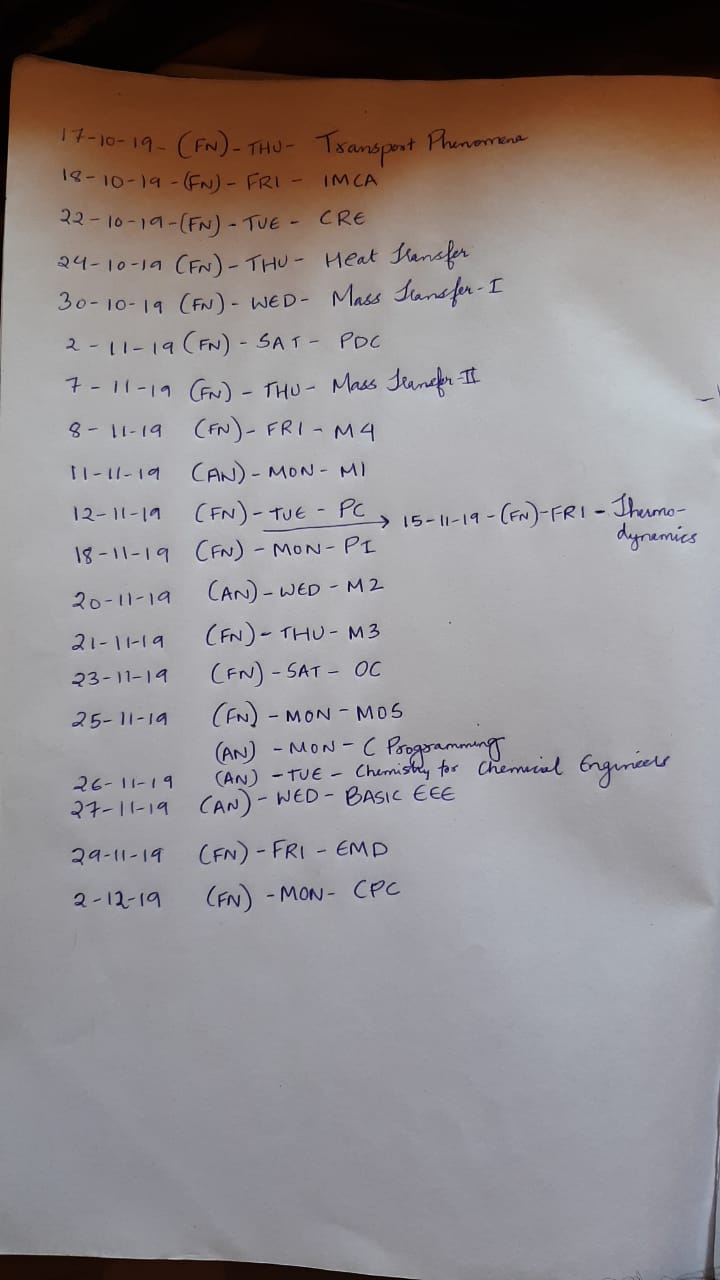 17-10-19-(FN)-THU- Transport Phenomena
18-10-19-(FN)-FRI- IMCA
22-10-19-(FN)-TUE- CRE
24-10-19 (FN)-THU- Heat Transfer
30-10-19 (FN)-WED- Mass Transfer-I
2-11-19 (FN)-SAT- PDC
7-11-19 (FN)-THU- Mass Transfer-II
8-11-19 (FN)-FRI-M4
11-11-19 (AN)-MON-M1
12-11-19 (FN)-TUE-PC → 15-11-19-(FN)-FRI-Thermo-
dynamics
18-11-19 (FN)-MON-PI
20-11-19 (AN)-WED-M2
21-11-19 (FN)-THU-M3
23-11-19 (FN)-SAT- OC
25-11-19 (FN)-MON-MOS
(AN)-MON-C Programming
26-11-19 (AN)-TUE-Chemistry for Chemical Engineers
27-11-19 (AN)-WED-BASIC EEE
29-11-19 (FN)-FRI-EMD
2-12-19 (FN)-MON- CPC